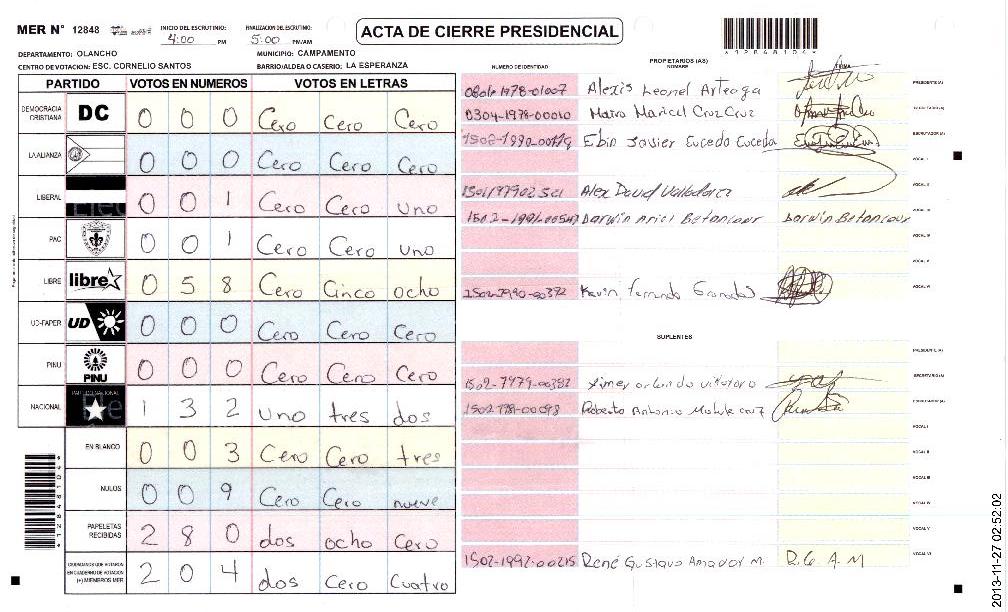 MER N° 12848
INICIO DEL ESCRUTINIO: 4:00 PM
FINALIZACION DEL ESCRUTINIO: 5:00 PM/AM
ACTA DE CIERRE PRESIDENCIAL
*12848104*
DEPARTAMENTO: OLANCHO
MUNICIPIO: CAMPAMENTO
CENTRO DE VOTACION: ESC. CORNELIO SANTOS
BARRIO/ALDEA O CASERIO: LA ESPERANZA
PARTIDO VOTOS EN NUMEROS VOTOS EN LETRAS
DEMOCRACIA CRISTIANA DC 0 0 0 Cero Cero Cero
LA ALIANZA 0 0 0 Cero Cero Cero
LIBERAL 0 0 1 Cero Cero uno
PAC 0 0 1 Cero Cero uno
LIBRE libre 0 5 8 Cero Cinco ocho
UD-FAPER UD 0 0 0 Cero Cero Cero
PINU PINU 0 0 0 Cero Cero Cero
NACIONAL PARTIDO NACIONAL 1 3 2 uno tres dos
EN BLANCO 0 0 3 Cero Cero tres
NULOS 0 0 9 Cero Cero nueve
PAPELETAS RECIBIDAS 2 8 0 dos ocho Cero
CIUDADANOS QUE VOTARON EN CUADERNO DE VOTACION (+) MIEMBROS MER 2 0 4 dos Cero Cuatro
PROPIETARIOS (AS)
NUMERO DE IDENTIDAD NOMBRE FIRMA
0801-1978-01007 Alexis Leonel Arteaga PRESIDENTE(A)
0304-1978-00010 Maira Maricel Cruz Cruz SECRETARIO (A)
1502-1990-00179 Ebin Javier Euceda Euceda ESCRUTADOR (A)
VOCAL I
Alex David Valladares VOCAL II
Darwin Ariel Betancour Darwin Betancour VOCAL III
VOCAL IV
VOCAL V
1502-1990-00372 Kevin Fernando Granados VOCAL VI
SUPLENTES
PRESIDENTE (A)
1502-1979-00382 orlando SECRETARIO (A)
Roberto Antonio cruz ESCRUTADOR (A)
VOCAL I
VOCAL II
VOCAL III
VOCAL IV
VOCAL V
1502-1992-00215 René Gustavo Amador M. R.G.A.M VOCAL VI
2013-11-27 02:52:02